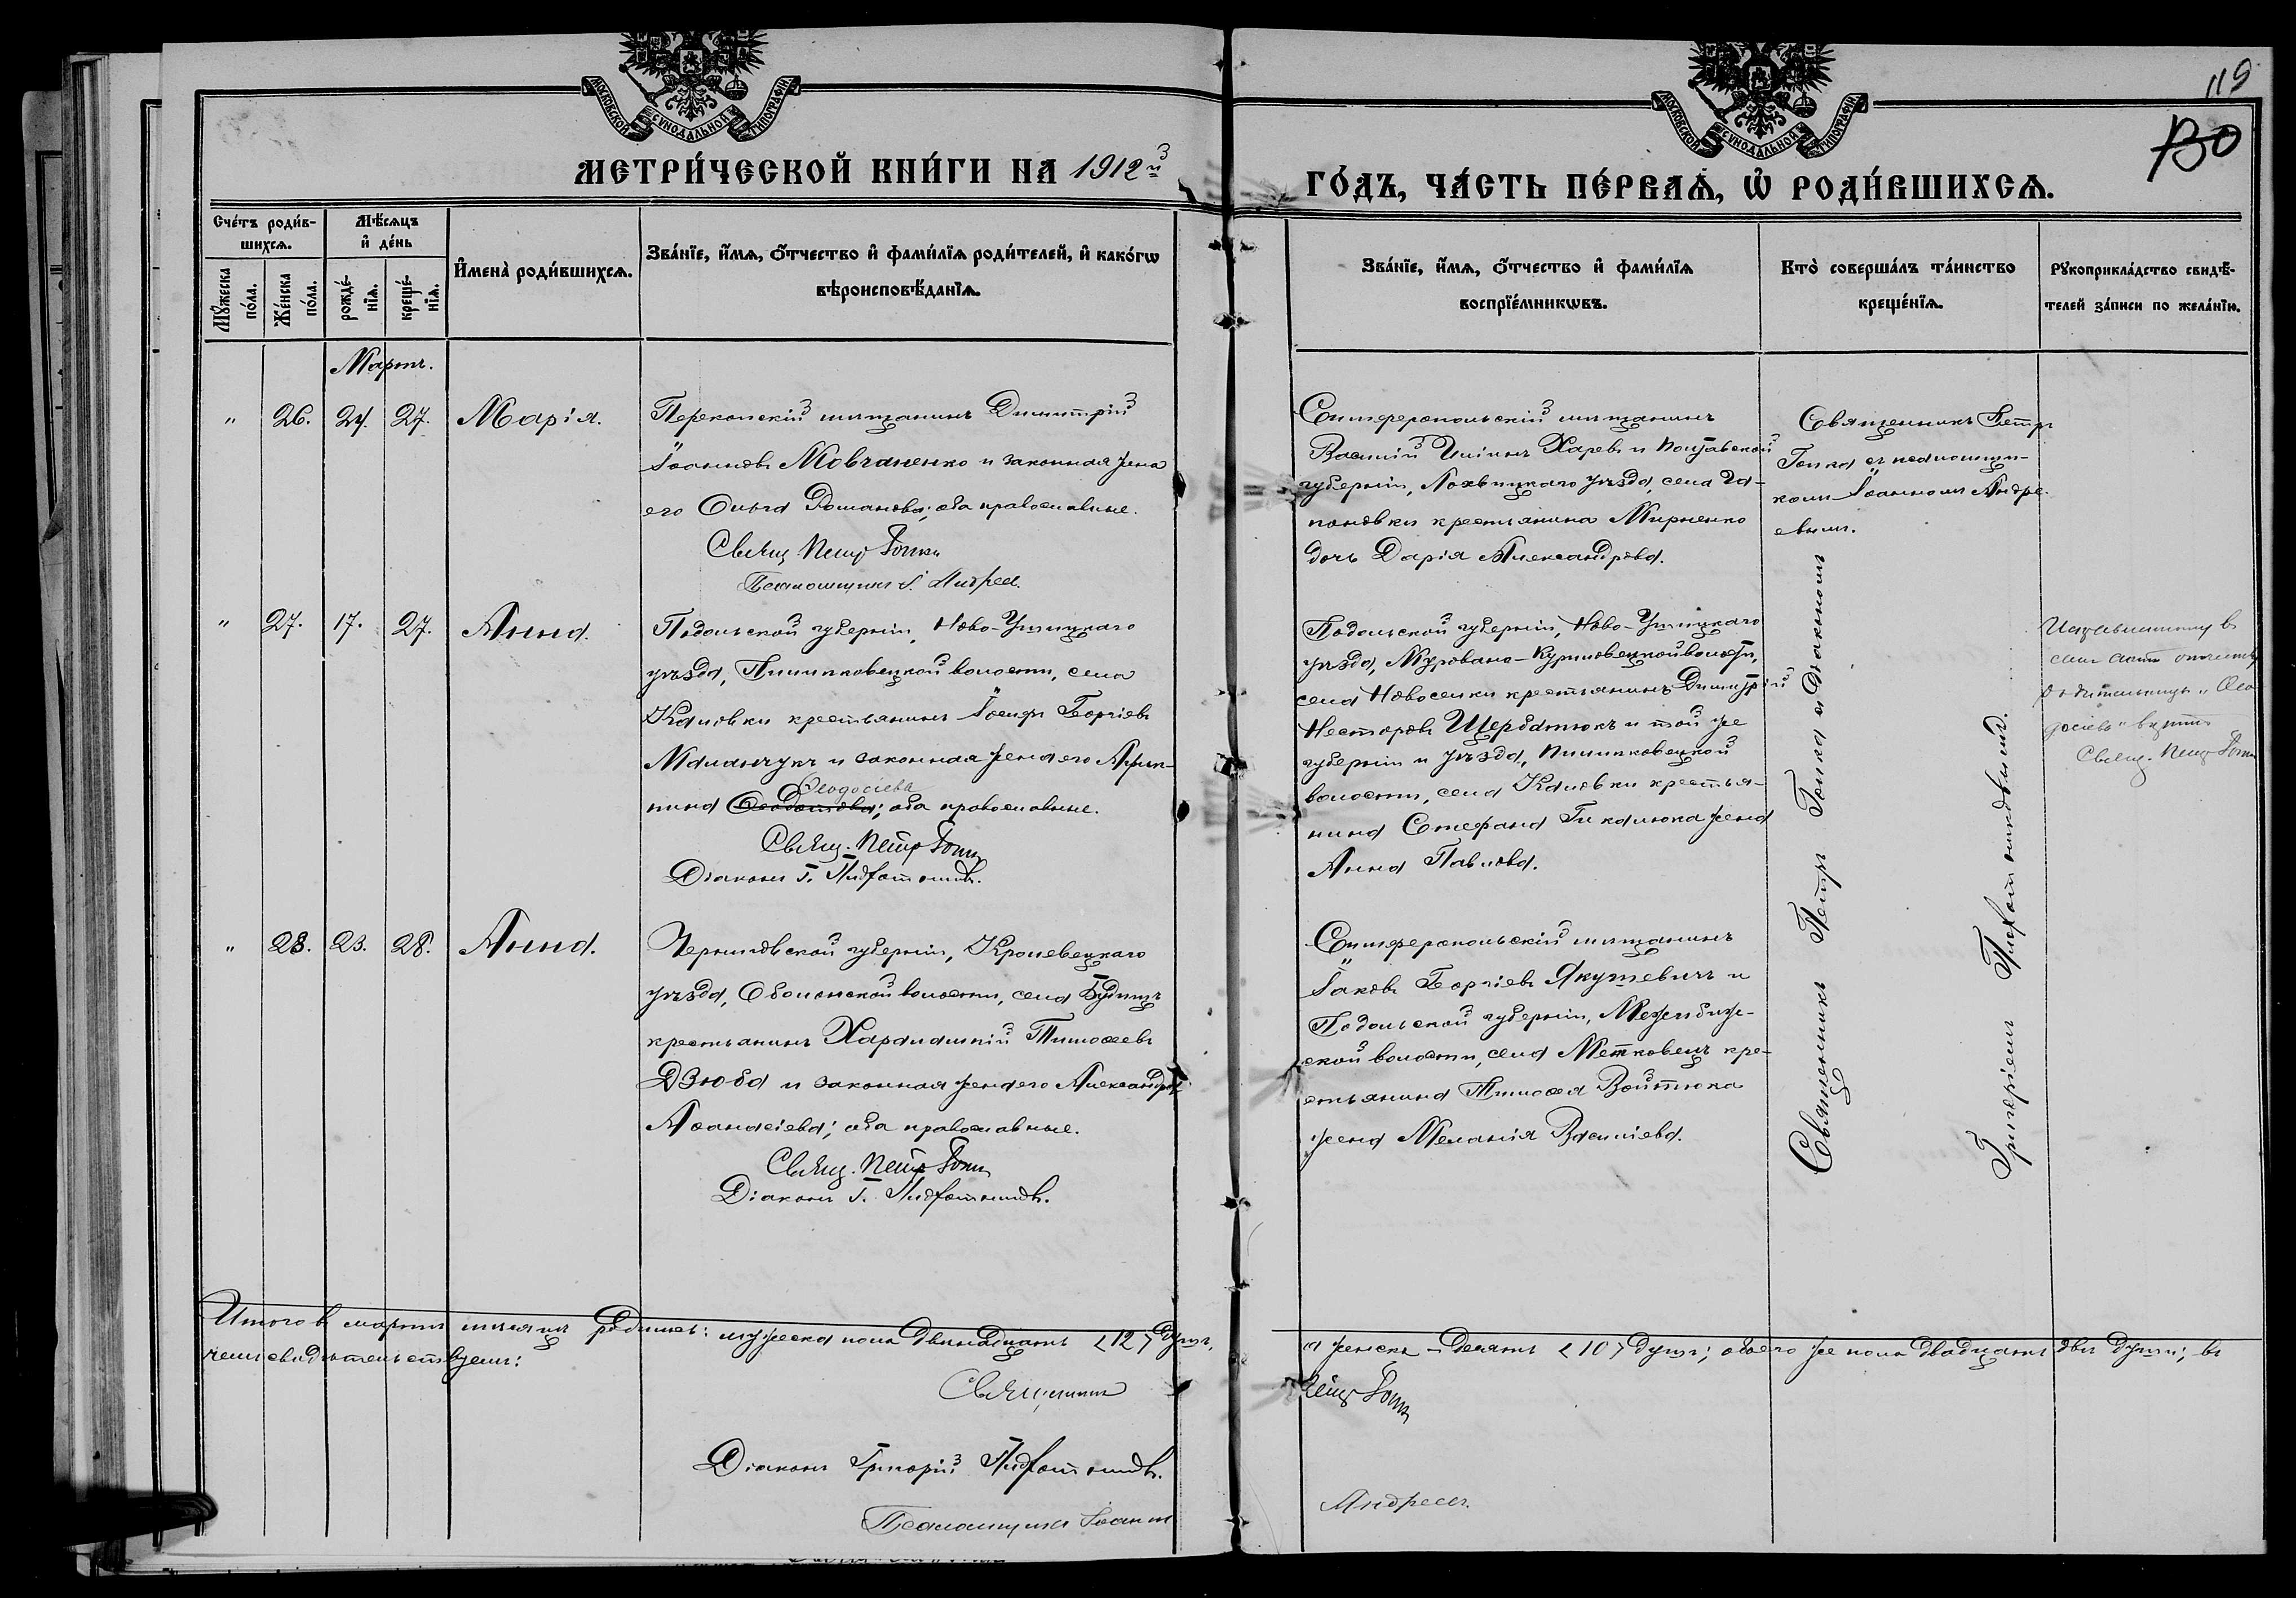 119
МОСКОВСКОЙ СѴНОДАЛЬНОЙ ТИПОГРАФІИ
МОСКОВСКОЙ СѴНОДАЛЬНОЙ ТИПОГРАФІИ
МЕТРИ́ЧЕСКОЙ КНИ́ГИ НА 1912й
ГО́ДЪ, ЧА́СТЬ ПЕ́РВАѦ, Ѡ҆ РОДИ́ВШИХСѦ.
Сче́тъ роди́в-
шихсѧ.
Мꙋ́жеска
по́ла.
Же́нска
по́ла.
Мѣ́сѧцъ
и҆ де́нь
рожде́-
нїѧ.
креще́-
нїѧ.
И҆мена̀ роди́вшихсѧ.
Зва́нїе, и҆́мѧ, ѻ҆́тчество и҆ фами́лїѧ роди́телей, и҆ како́гѡ
вѣроисповѣ́данїѧ.
Зва́нїе, и҆́мѧ, ѻ҆́тчество и҆ фами́лїѧ
воспрїе́мникѡвъ.
Кто̀ соверша́лъ та́инство
креще́нїѧ.
Рꙋкоприкла́дство свидѣ́-
телей за́писи по жела́нїю.
Мартъ.
" 26. 24. 27. Марія.
Перекопскій мѣщанинъ Димитрій
Іоанновъ Мовчаненко и законная жена
его Ольга Романова; оба православные.
Свящ. Петр Гонка
Псаломщикъ І. Андреев
Симферопольскій мѣщанинъ
Василій Ильинъ Харев и Полтавской
губерніи, Лохвицкаго уѣзда, села
крестьянина Мирненко
дочь Дарія Александрова.
Священникъ Петръ
Гонка съ псаломщи-
комъ Іоанномъ Андре-
евымъ.
" 27. 17. 27. Анна.
Подольской губерніи, Ново-Ушицкаго
уѣзда, волости, села
крестьянинъ Іосифъ Георгіевъ
Маланчукъ и законная жена его Агрип-
Ѳеодосіева
пина; оба православные.
Свящ. Петр Гонка
Діаконъ Г.
Подольской губерніи, Ново-Ушицкаго
уѣзда, Мурованo-Куриловецкой волости,
села Новоселки крестьянинъ Димитрій
Несторовъ Щербатюкъ и той же
губерніи и уѣзда,
волости, села крестья-
нина Стефана жена
Анна Павлова.
Священникъ Петръ Гонка и діакономъ
Григоріемъ
въ
семъ актѣ отчеству
родительницы "Ѳео-
досіева" вѣрить
Свящ. Петр Гонка
" 28. 23. 28. Анна.
Черниговской губерніи, Кролевецкаго
уѣзда, Оболонской волости, села Будищъ
крестьянинъ Харалампій Тимоѳеевъ
Дзюба и законная жена его Александра
Аѳанасіева; оба православные.
Свящ. Петр Гонка
Діаконъ Г.
Симферопольскій мѣщанинъ
Іаковъ Георгіевъ Якушевичъ и
Подольской губерніи, Меджибож-
ской волости, села Митковецъ кре-
стьянина Тимоѳея Войтюка
жена Меланія Василіева.
Итого въ мартѣ мѣсяцѣ родилось: мужеска пола двѣнадцать (12) душъ,
а женска – десять (10) душъ; обоего же пола двадцать двѣ души; въ
чемъ свидѣтельствуемъ:
Священникъ
Петр Гонка
Діаконъ Григорій
Псаломщикъ Іоаннъ
Андреевъ.